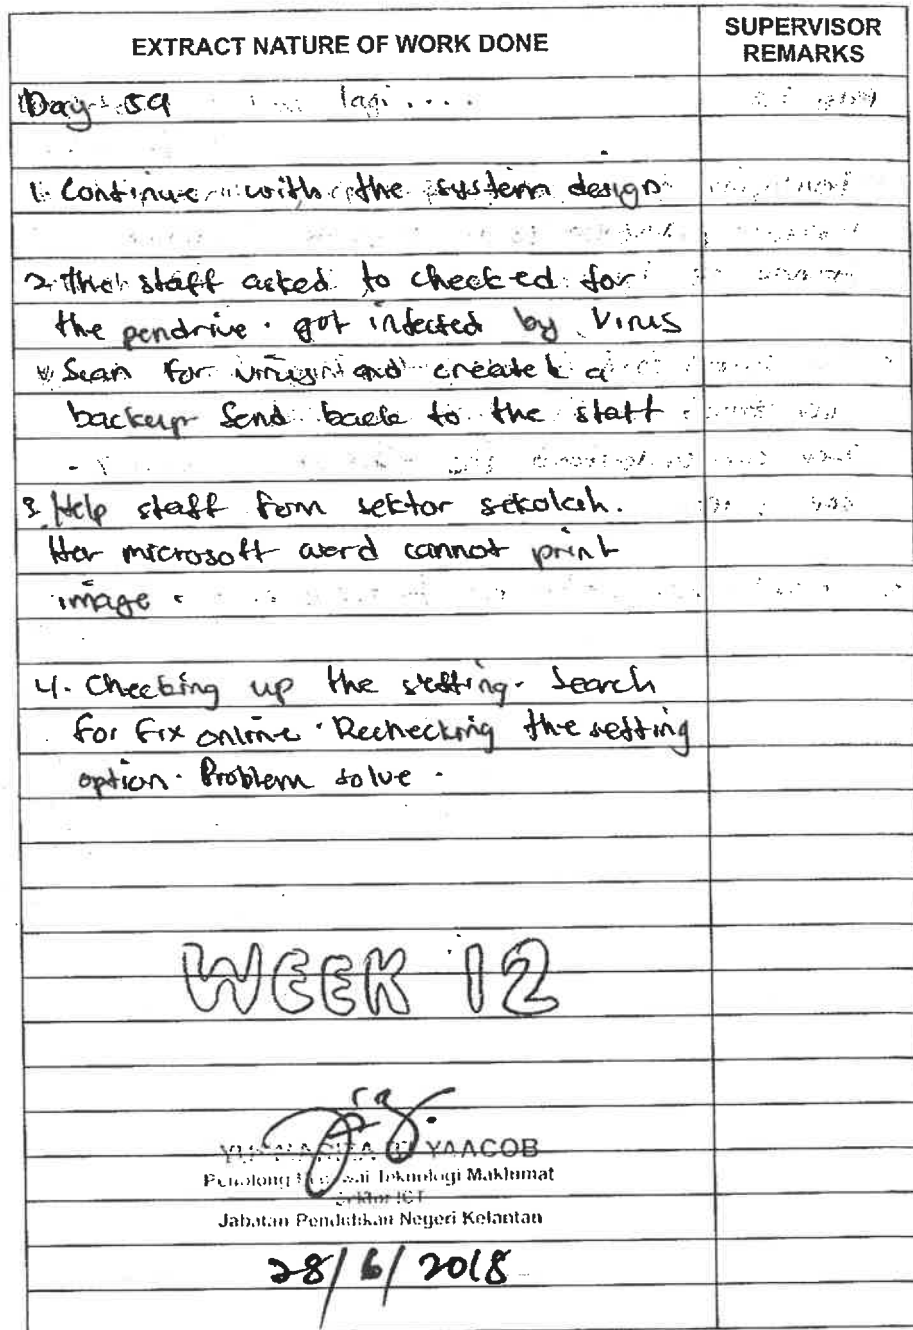 EXTRACT NATURE OF WORK DONE
SUPERVISOR
REMARKS
Day 59 lagi ....
1. Continue with the system design
2. The staff asked to checked for
the pendrive. got infected by Virus
Scan for virus and create a
backup Send back to the staff
3. Help staff from sektor sekolah.
Her microsoft word cannot print
image.
4. Checking up the setting. Search
for fix online. Rechecking the setting
option. Problem solve.
WEEK 12
YAACOB
Penolong Pegawai Teknologi Maklumat
Sektor ICT
Jabatan Pendidikan Negeri Kelantan
28/6/2018